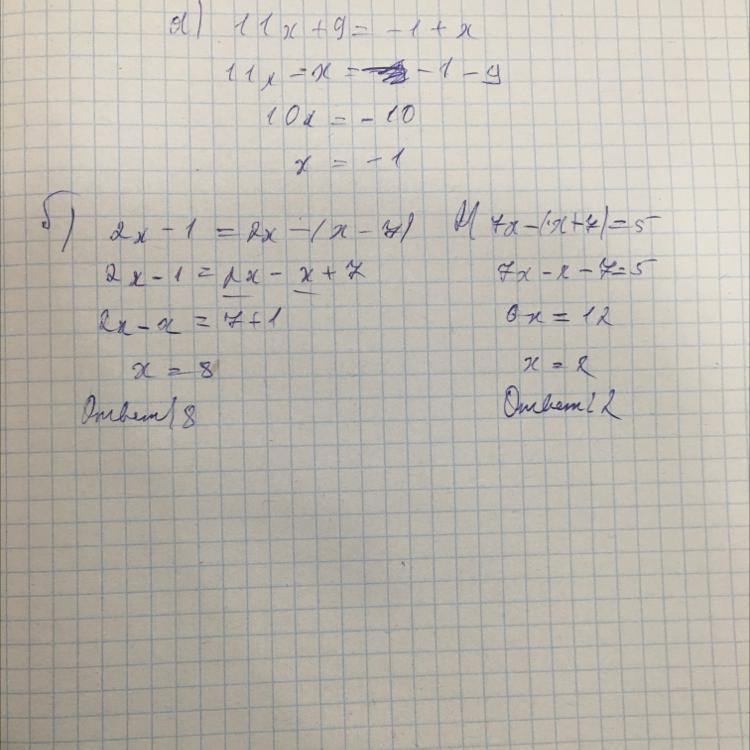 а) 11x + 9 = -1 + x
11x - x = -1 - 9
10x = -10
x = -1
б) 2x - 1 = 2x - (x - 7)
2x - 1 = 2x - x + 7
2x - x = 7 + 1
x = 8
Ответ: 8
7x - (x + 7) = 5
7x - x - 7 = 5
6x = 12
x = 2
Ответ: 2